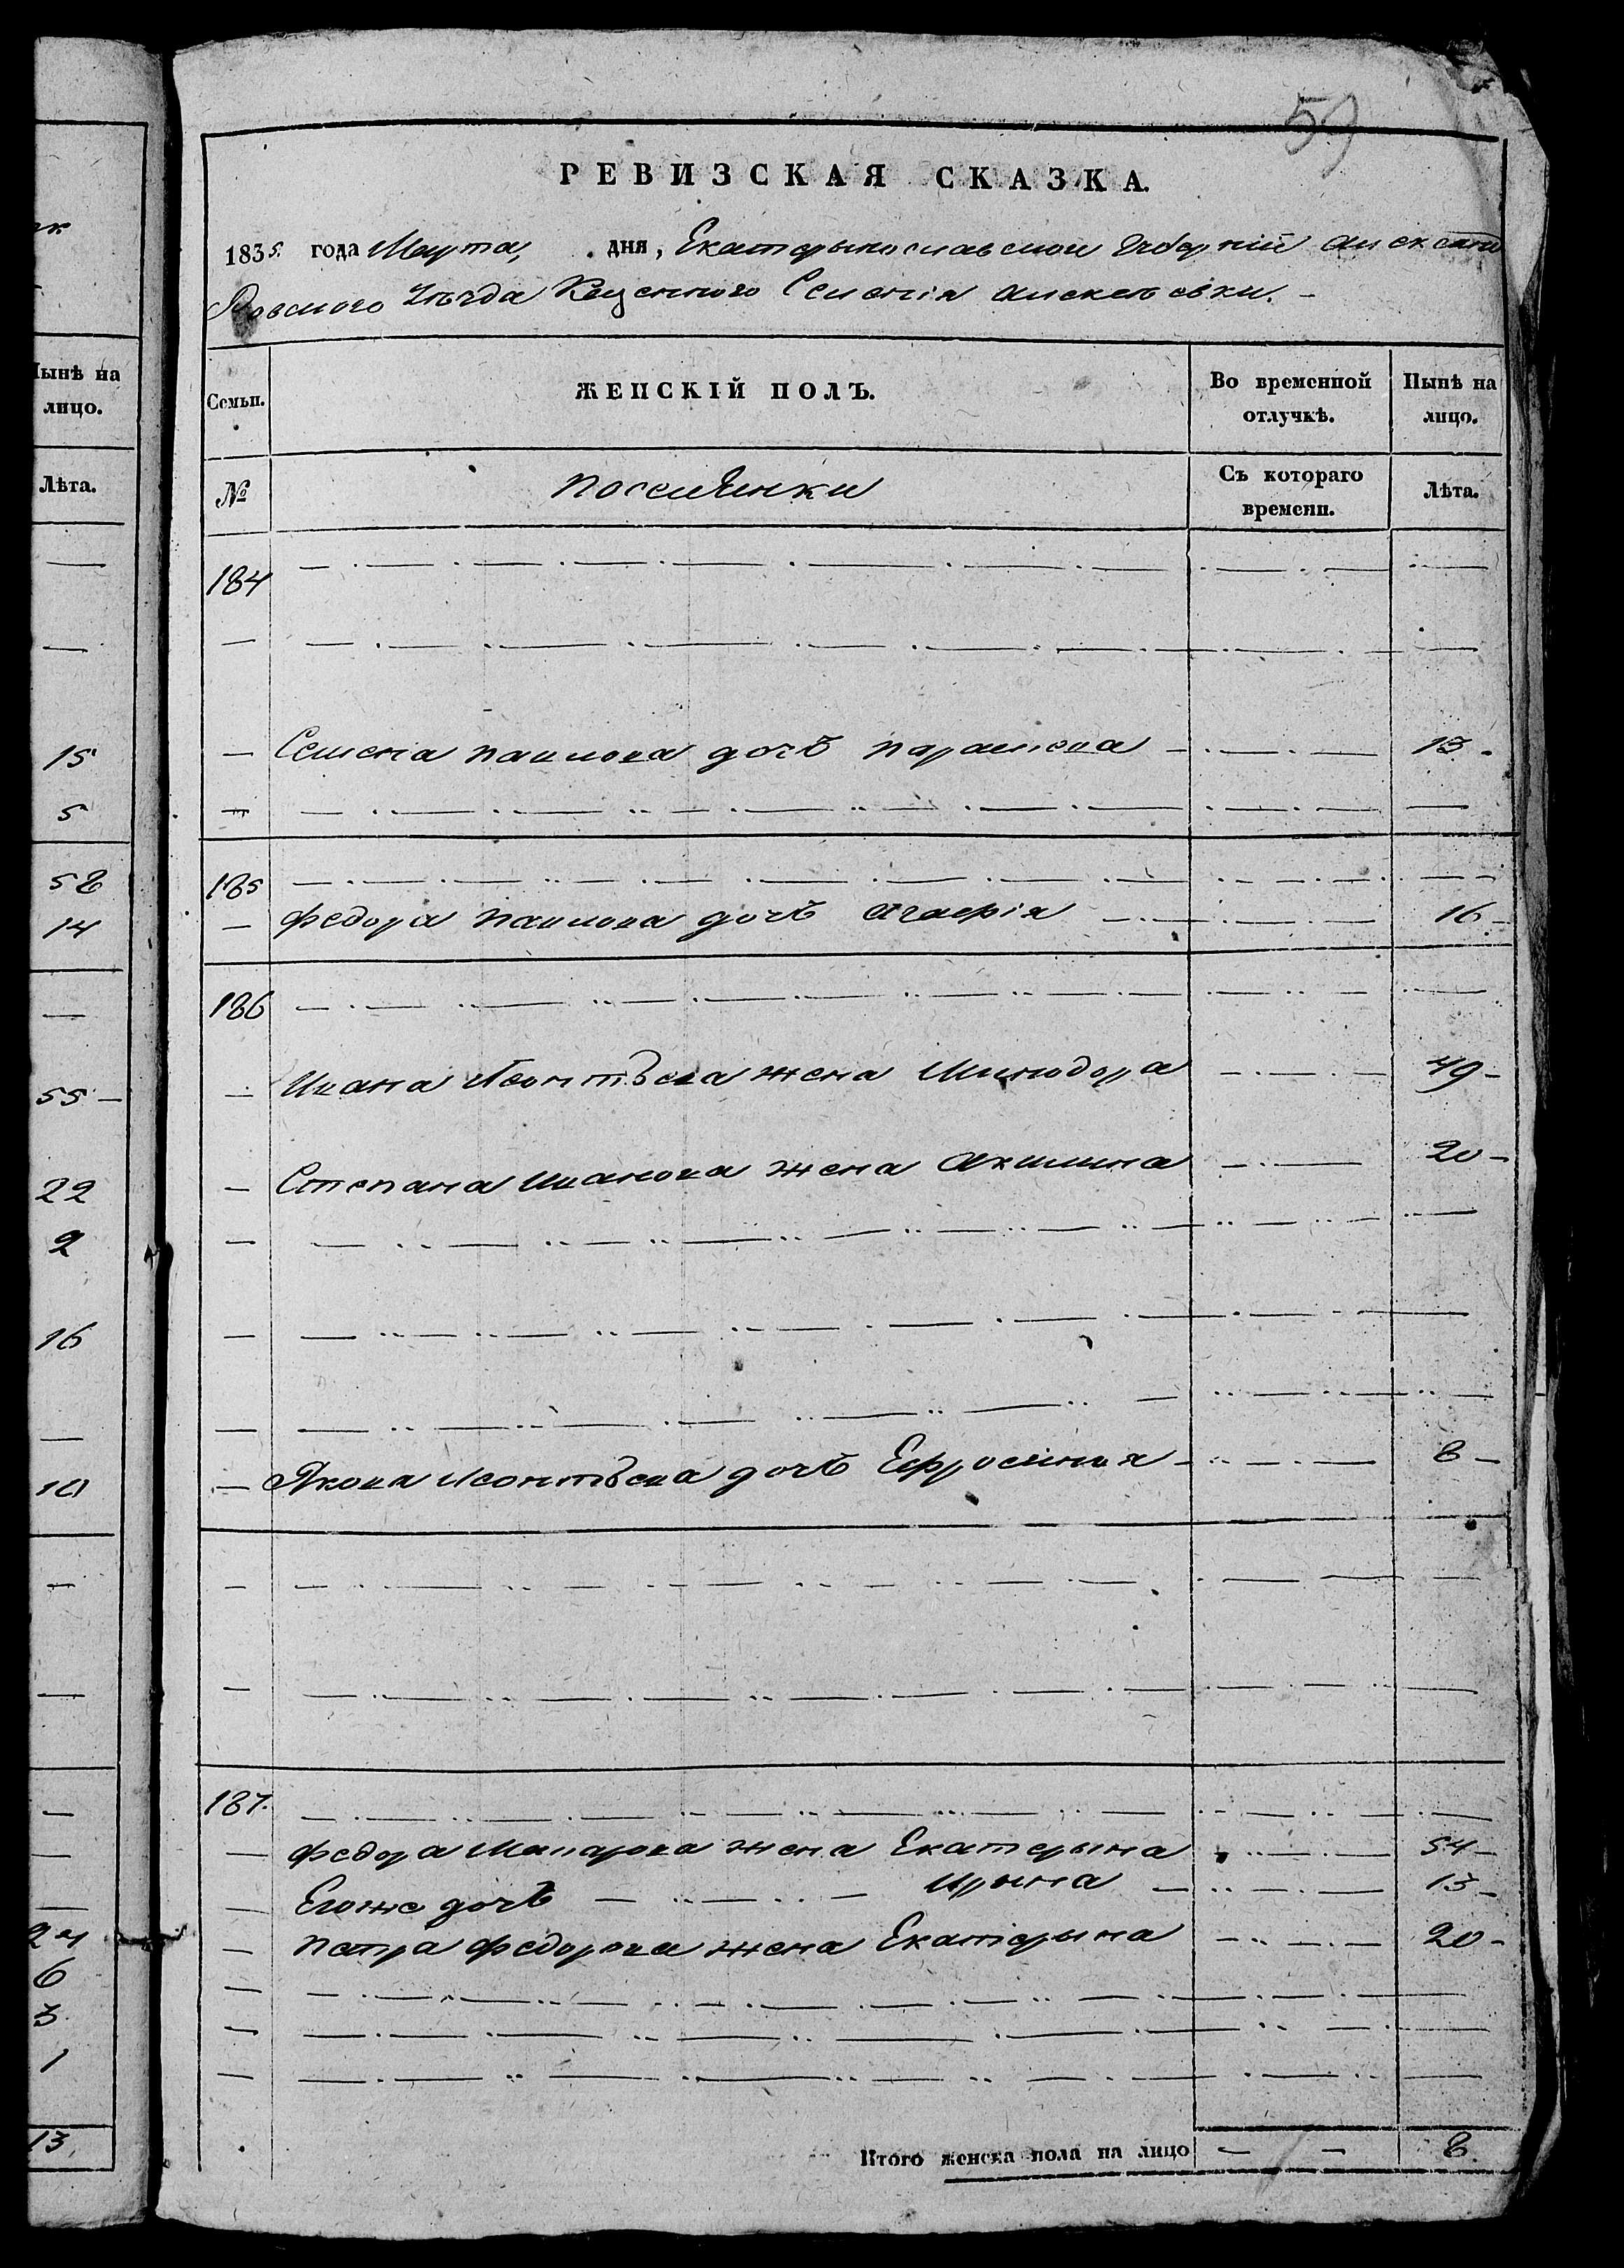 59
РЕВИЗСКАЯ СКАЗКА.
1835 года Марта, дня, Екатерынославской Губерніи Александ
Ровского Уезда Казенного Селенія Алексеевки.
Семьи. ЖЕНСКІЙ ПОЛЪ. Во временной отлучкѣ. Нынѣ на лицо.
№ поселянки Съ котораго времени. Лѣта.
184
Семена павлова дочь параскева 13
185
Федора павлова дочь Агафія 16
186
Ивана Леонтьева жена Минодора 49
Степана Иванова жена Акилина 20
Якова Леонтьева дочь Ефросиния 8
187.
Федора Макарова жена Екатерына 54
Егоже дочь Ирына 13
петра Федорова жена Екатерына 20
Итого женска пола на лицо 8
Нынѣ на
лицо.
Лѣта.
15
5
58
14
55
22
2
16
10
24
6
3
1
13